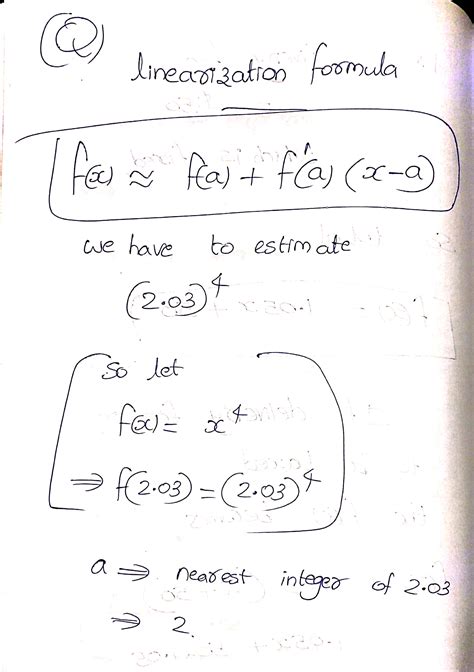 (Q)
linearization formula
f(x) ≈ f(a) + f'(a) (x-a)
we have to estimate
(2.03)⁴
So let
f(x) = x⁴
⇒ f(2.03) = (2.03)⁴
a ⇒ nearest integer of 2.03
⇒ 2.